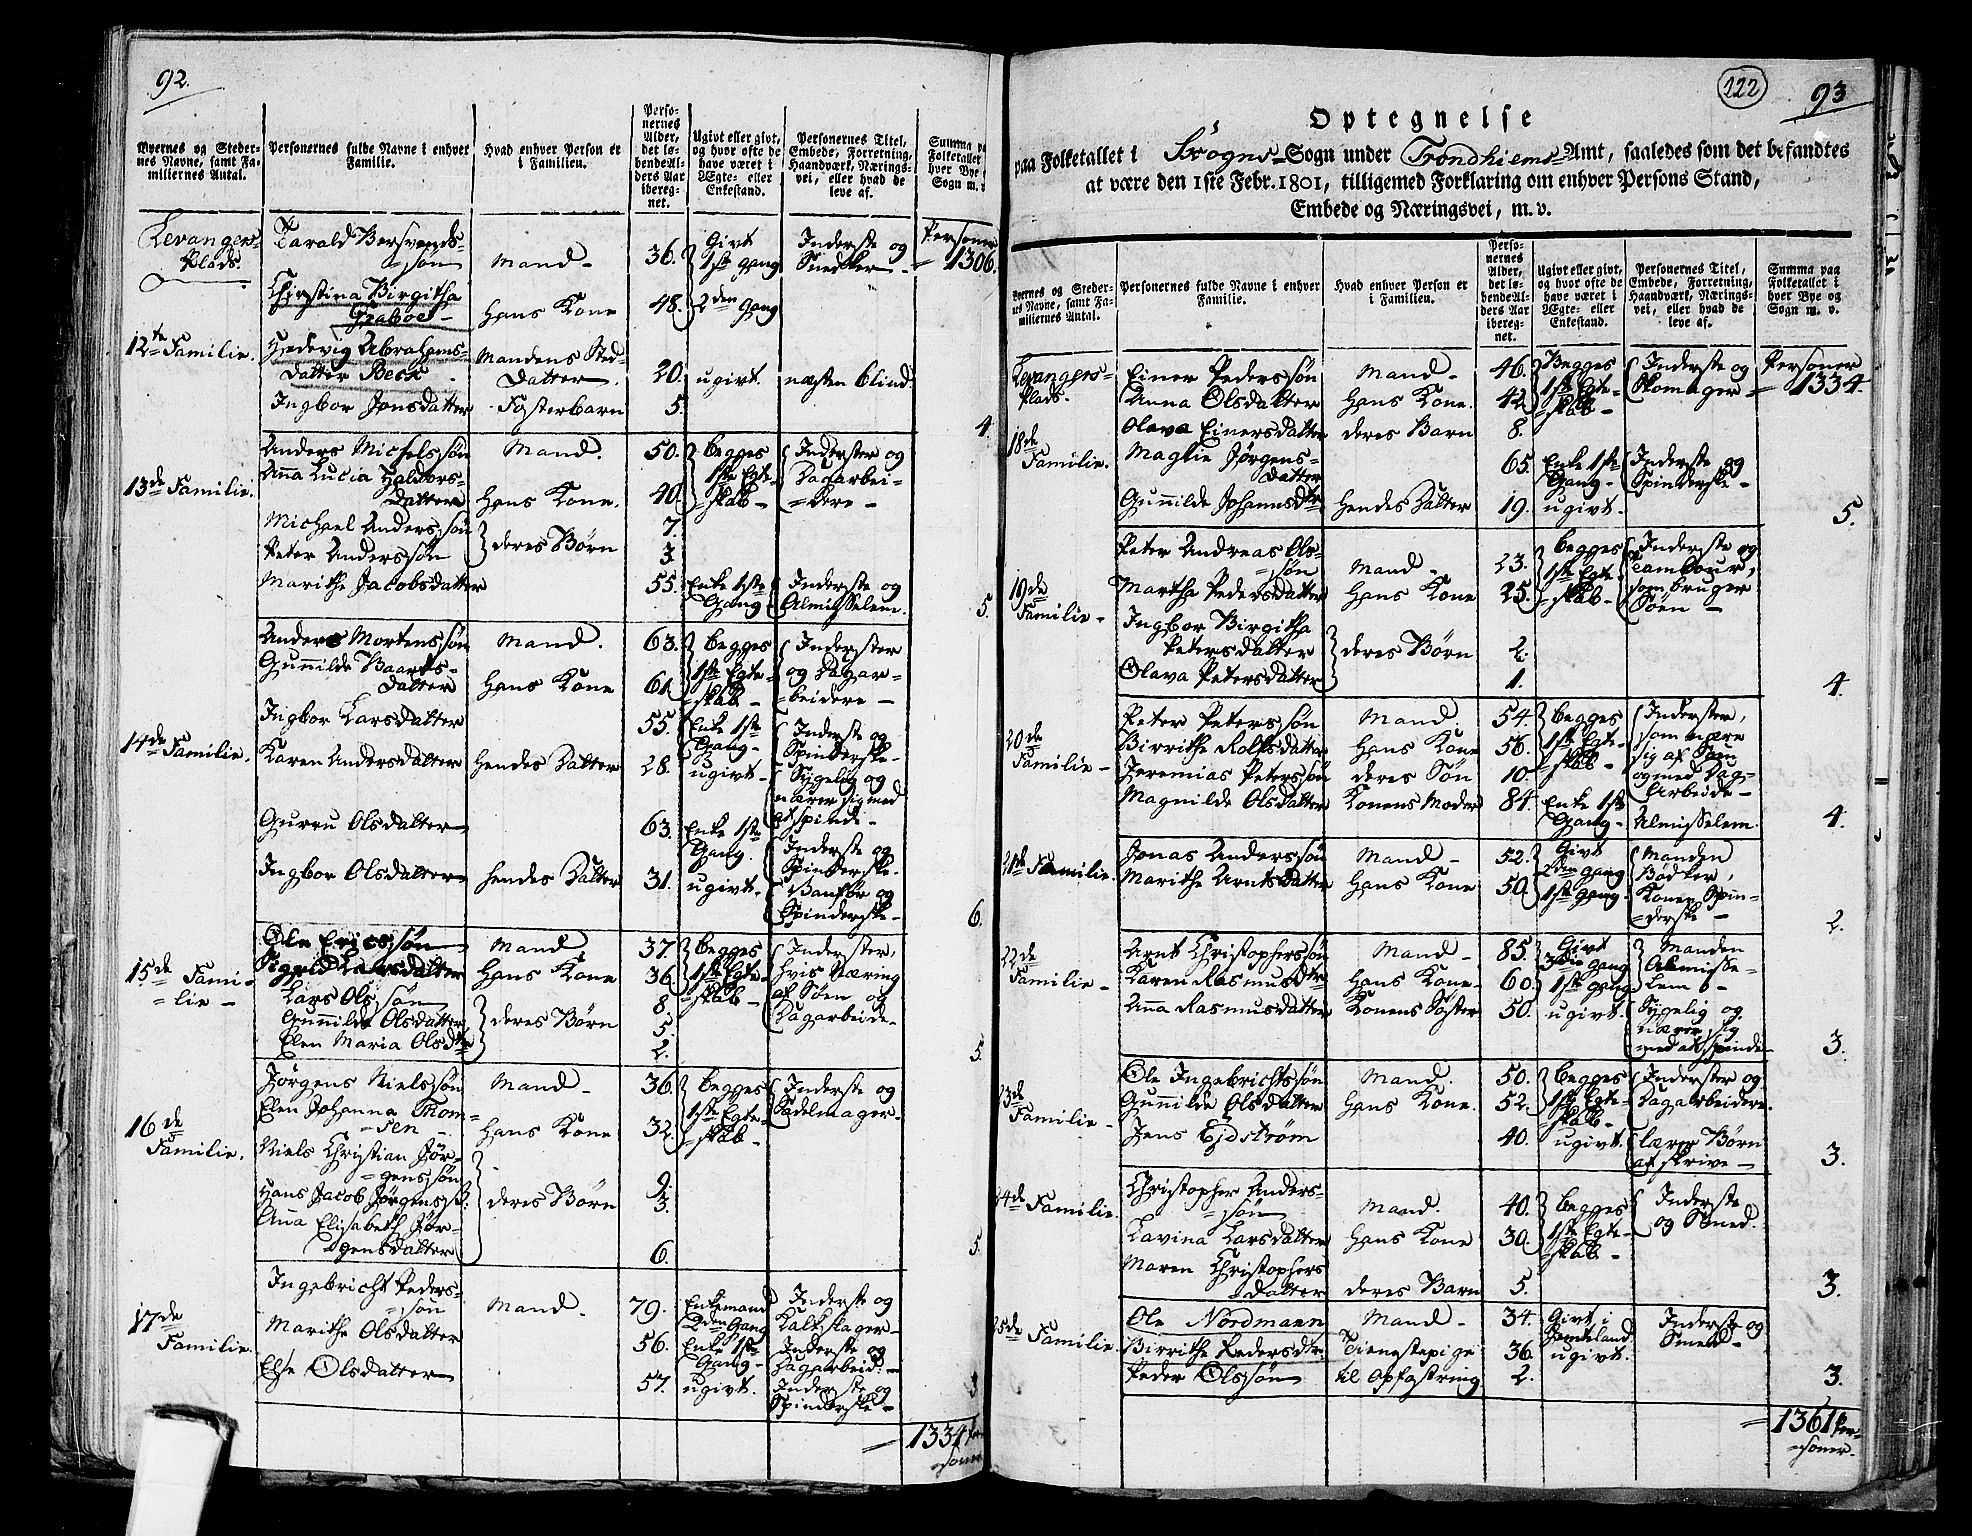 92.
Byernes og Steder-
nes Navne, samt Fa-
miliernes Antal.
Personernes fulde Navne i enhver
Familie.
Hvad enhver Person er
i Familien.
Perso-
nernes
Alder,
det lø-
bende Al-
ders Aar
ibereg-
net.
Ugivt eller givt,
og hvor ofte de
have været i
Ægte- eller
Enkestand.
Personernes Titel,
Embede, Forretning,
Haandværk, Nærings-
vei, eller hvad de
leve af.
Summa paa
Folketallet
hver Bye
Sogn m. v.
Levangers-
Plads.
Tarald Bersvends-
søn Mand- 36. Givt 1ste Gang Inderste og Snedker- Personer 1306.
12te Familie.
Christina Birgitha
Hans Kone 48. 2den Gang
Hedevig Abrahams-
datter Beck Mandens Sted-
datter. 20. ugivt. næsten blind.
Ingbor Jonsdatter Fosterbarn 5.
4.
13de Familie.
Anders Michelssøn Mand. 50. Begges 1ste Egte-skab- Inderster og Dagarbei-dere-
Anna Lucia Haldors-
datter Hans Kone. 40.
Michael Anderssøn 7.
Peter Anderssøn deres Børn 3.
Marithe Jacobsdatter 55. Enke 1ste Gang Inderste og Almisselem.
5.
14de Familie.
Anders Mortenssøn Mand. 63. Begges 1ste Egte-skab- Inderster og Dagar-beidere-
Gunnilde Baards-
datter Hans Kone 61.
Ingbor Larsdatter 55. Enke 1ste Gang- Inderste og Spinderske-
Karen Andersdatter Hendes Datter 28. ugivt- Sygelig og nærer sig med at spinde-
Guru Olsdatter 63. Enke 1ste Gang. Inderste og Spinderske.
Ingbor Olsdatter Hendes Datter 31. ugivt. Vanfør og Spinderske-
6.
15de Fami-
lie-
Ole Ericssøn Mand 37. Begges 1ste Egte-skab- Inderster, hvis Næring af Søen og Dagarbeide-
Sigrid Larsdatter Hans Kone 36
Lars Olssøn 8.
Gunnilde Olsdatter deres Børn 5.
Elen Maria Olsdtr 2.
5.
16de
Familie.
Jørgens Nielssøn Mand- 36. Begges 1ste Egte-skab- Inderste og Sadelmager.
Elen Johanna Thom-
sen- Hans Kone 32.
Niels Christian Jør-
genssøn 9.
Hans Jacob Jørgenss: deres Børn 3.
Anna Elisabeth Jør-
gensdatter 6.
5.
17de
Familie.
Ingebricht Peders-
søn Mand. 79. Enkemand 2den Gang Inderste og Kalkslager-
Marithe Olsdatter 56. Enke 1ste Gang- Inderste og Dagarbeid:-
Else Olsdatter 57. ugivt. Inderste og Spinderske-
3
1334 Per-
soner
222
93
Optegnelse
paa Folketallet i Skogns-Sogn under Trondhiems-Amt, saaledes som det befandtes
at være den 1ste Febr. 1801, tilligemed Forklaring om enhver Persons Stand,
Embede og Næringsvei, m. v.
Byernes og Steder-
nes Navne, samt Fa-
miliernes Antal.
Personernes fulde Navne i enhver
Familie.
Hvad enhver Person er
i Familien.
Perso-
nernes
Alder,
det lø-
bende Al-
ders Aar
ibereg-
net.
Ugivt eller givt,
og hvor ofte de
have været i
Ægte- eller
Enkestand.
Personernes Titel,
Embede, Forretning,
Haandværk, Nærings-
vei, eller hvad de
leve af.
Summa paa
Folketallet i
hver Bye og
Sogn m. v.
Levangers-
Plads.
Einer Pederssøn Mand- 46. Begges 1ste Egte-skab- Inderste og Skomager- Personer 1334
Anna Olsdatter Hans Kone. 42
18de
Familie.
Olava Einersdatter deres Barn 8.
Maglie Jørgens-
datter 65. Enke 1ste Gang- Inderste og Spinderske-
Gunnilde Johannsdtr Hendes Datter 19. ugivt.
5.
19de
Familie-
Peter Andreas Ols-
søn Mand- 23. Begges 1ste Egte-skab- Inderste og Tambour, som bruger Søen-
Marthe Pedersdatter Hans Kone 25.
Ingbor Birgitha
Petersdatter deres Børn 2.
Olava Petersdatter 1.
4.
20de
Familie-
Peter Peterssøn Mand. 54. Begges 1ste Egte-skab- Inderster, som nære sig af Søen og med Dag-Arbeide-
Birrithe Rolfsdatter Hans Kone 56.
Jeremias Peterssøn deres Søn 10.
Magnilde Olsdatter Konens Moder 84. Enke 1ste Gang- Almisselem.
4.
21de Familie.
Jonas Anderssøn Mand- 52. Givt 2den Gang Manden Bødker,
Marithe Arntsdatter Hans Kone 50. 1ste Gang. Konen Spin-derske-
2.
22de
Familie-
Arnt Christopherssøn Mand- 85. Givt 3die Gang Manden Almisse-lem-
Karen Rasmusdtr Hans Kone- 60. 1ste Gang
Anna Rasmusdatter Konens Søster 50. ugivt. Sygelig og nærer sig med at spinde-
3.
23de
Familie-
Ole Ingebrichtssøn Mand. 50. Begges 1ste Egte-skab- Inderster og Dagarbeidere.
Gunnilde Olsdatter Hans Kone. 52.
Jens Eidstrøm 40. ugivt. lærer Børn at skrive-
3.
24de Familie.
Christopher Anders-
søn Mand. 40. Begges 1ste Egte-skab- Inderste og Smed.
Lavina Larsdatter Hans Kone 30.
Maren Christophers
datter deres Barn 5.
3.
25de Familie.
Ole Nordmann Mand- 34. Givt i Jemteland Inderste og Smed-
Birrithe Pedersdtr. Tienestepige 36. ugivt.
Peder Olssøn til Opfostring 2.
3.
1361 Per-
soner.